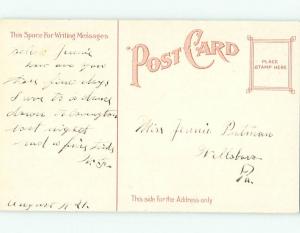 This Space For Writing Messages
POST CARD
PLACE
STAMP HERE
how are you
these fine days
I was to a dance
down
last night
had a fine time
August 4
Miss Jennie Putman
Wellsboro
Pa.
This side for the Address only